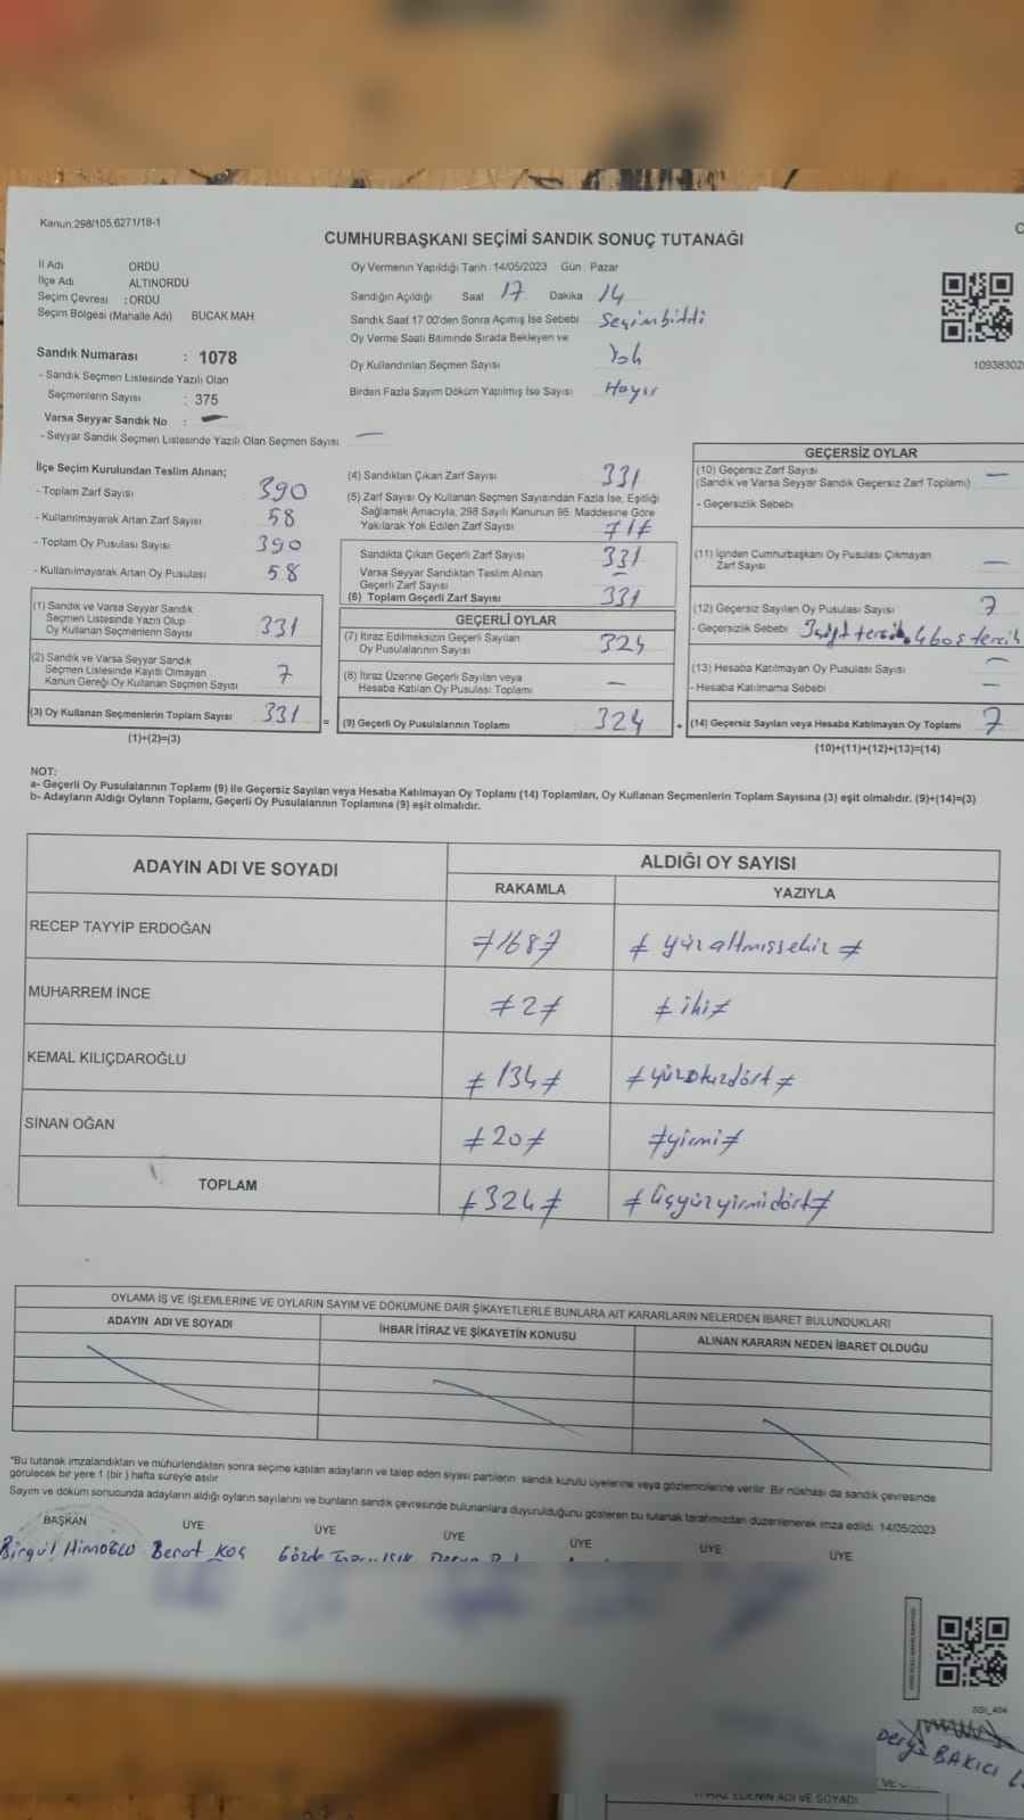 Kanun.298/105,6271/18-1
CUMHURBAŞKANI SEÇİMİ SANDIK SONUÇ TUTANAĞI
İl Adı ORDU
İlçe Adı ALTINORDU
Seçim Çevresi : ORDU
Seçim Bölgesi (Mahalle Adı) BUCAK MAH
Oy Vermenin Yapıldığı Tarih : 14/05/2023 Gün : Pazar
Sandığın Açıldığı Saat 17 Dakika 14
Sandık Saat 17.00'den Sonra Açılmış İse Sebebi Seçim bitti
Oy Verme Saati Bitiminde Sırada Bekleyen ve
Oy Kullandırılan Seçmen Sayısı Yok
Birden Fazla Sayım Döküm Yapılmış İse Sayısı Hayır
10938302
Sandık Numarası : 1078
- Sandık Seçmen Listesinde Yazılı Olan
Seçmenlerin Sayısı : 375
Varsa Seyyar Sandık No : —
- Seyyar Sandık Seçmen Listesinde Yazılı Olan Seçmen Sayısı —
İlçe Seçim Kurulundan Teslim Alınan;
- Toplam Zarf Sayısı 390
- Kullanılmayarak Artan Zarf Sayısı 58
- Toplam Oy Pusulası Sayısı 390
- Kullanılmayarak Artan Oy Pusulası 58
(1) Sandık ve Varsa Seyyar Sandık
Seçmen Listesinde Yazılı Olup
Oy Kullanan Seçmenlerin Sayısı 331
(2) Sandık ve Varsa Seyyar Sandık
Seçmen Listesinde Kayıtlı Olmayan
Kanun Gereği Oy Kullanan Seçmen Sayısı 7
(3) Oy Kullanan Seçmenlerin Toplam Sayısı 331
(1)+(2)=(3)
(4) Sandıktan Çıkan Zarf Sayısı 331
(5) Zarf Sayısı Oy Kullanan Seçmen Sayısından Fazla İse, Eşitliği
Sağlamak Amacıyla, 298 Sayılı Kanunun 98. Maddesine Göre
Yakılarak Yok Edilen Zarf Sayısı
Sandıkta Çıkan Geçerli Zarf Sayısı 331
Varsa Seyyar Sandıktan Teslim Alınan
Geçerli Zarf Sayısı —
(6) Toplam Geçerli Zarf Sayısı 331
GEÇERLİ OYLAR
(7) İtiraz Edilmeksizin Geçerli Sayılan
Oy Pusulalarının Sayısı 324
(8) İtiraz Üzerine Geçerli Sayılan veya
Hesaba Katılan Oy Pusulası Toplamı —
= (9) Geçerli Oy Pusulalarının Toplamı 324
GEÇERSİZ OYLAR
(10) Geçersiz Zarf Sayısı —
(Sandık ve Varsa Seyyar Sandık Geçersiz Zarf Toplamı)
- Geçersizlik Sebebi
(11) İçinden Cumhurbaşkanı Oy Pusulası Çıkmayan
Zarf Sayısı —
(12) Geçersiz Sayılan Oy Pusulası Sayısı 7
- Geçersizlik Sebebi 3 tercih 4 boş tercih
(13) Hesaba Katılmayan Oy Pusulası Sayısı —
- Hesaba Katılmama Sebebi —
+ (14) Geçersiz Sayılan veya Hesaba Katılmayan Oy Toplamı 7
(10)+(11)+(12)+(13)=(14)
NOT:
a- Geçerli Oy Pusulalarının Toplamı (9) ile Geçersiz Sayılan veya Hesaba Katılmayan Oy Toplamı (14) Toplamları, Oy Kullanan Seçmenlerin Toplam Sayısına (3) eşit olmalıdır. (9)+(14)=(3)
b- Adayların Aldığı Oyların Toplamı, Geçerli Oy Pusulalarının Toplamına (9) eşit olmalıdır.
ADAYIN ADI VE SOYADI ALDIĞI OY SAYISI
RAKAMLA YAZIYLA
RECEP TAYYİP ERDOĞAN ≠168≠ ≠ yüzaltmışsekiz ≠
MUHARREM İNCE ≠2≠ ≠ iki ≠
KEMAL KILIÇDAROĞLU ≠134≠ ≠ yüzotuzdört ≠
SİNAN OĞAN ≠20≠ ≠ yirmi ≠
TOPLAM ≠324≠ ≠ üçyüzyirmidört ≠
OYLAMA İŞ VE İŞLEMLERİNE VE OYLARIN SAYIM VE DÖKÜMÜNE DAİR ŞİKAYETLERLE BUNLARA AİT KARARLARIN NELERDEN İBARET BULUNDUKLARI
ADAYIN ADI VE SOYADI İHBAR İTİRAZ VE ŞİKAYETİN KONUSU ALINAN KARARIN NEDEN İBARET OLDUĞU
*Bu tutanak imzalandıktan ve mühürlendikten sonra seçime katılan adayların ve talep eden siyasi partilerin sandık kurulu üyelerine veya gözlemcilerine verilir. Bir nüshası da sandık çevresinde
görülecek bir yere 1 (bir) hafta süreyle asılır.
Sayım ve döküm sonucunda adayların aldığı oyların sayılarını ve bunların sandık çevresinde bulunanlara duyurulduğunu gösteren bu tutanak tarafımızdan düzenlenerek imza edildi. 14/05/2023
BAŞKAN ÜYE ÜYE ÜYE ÜYE ÜYE ÜYE
Birgül Berat KOÇ
Derya BAKICI